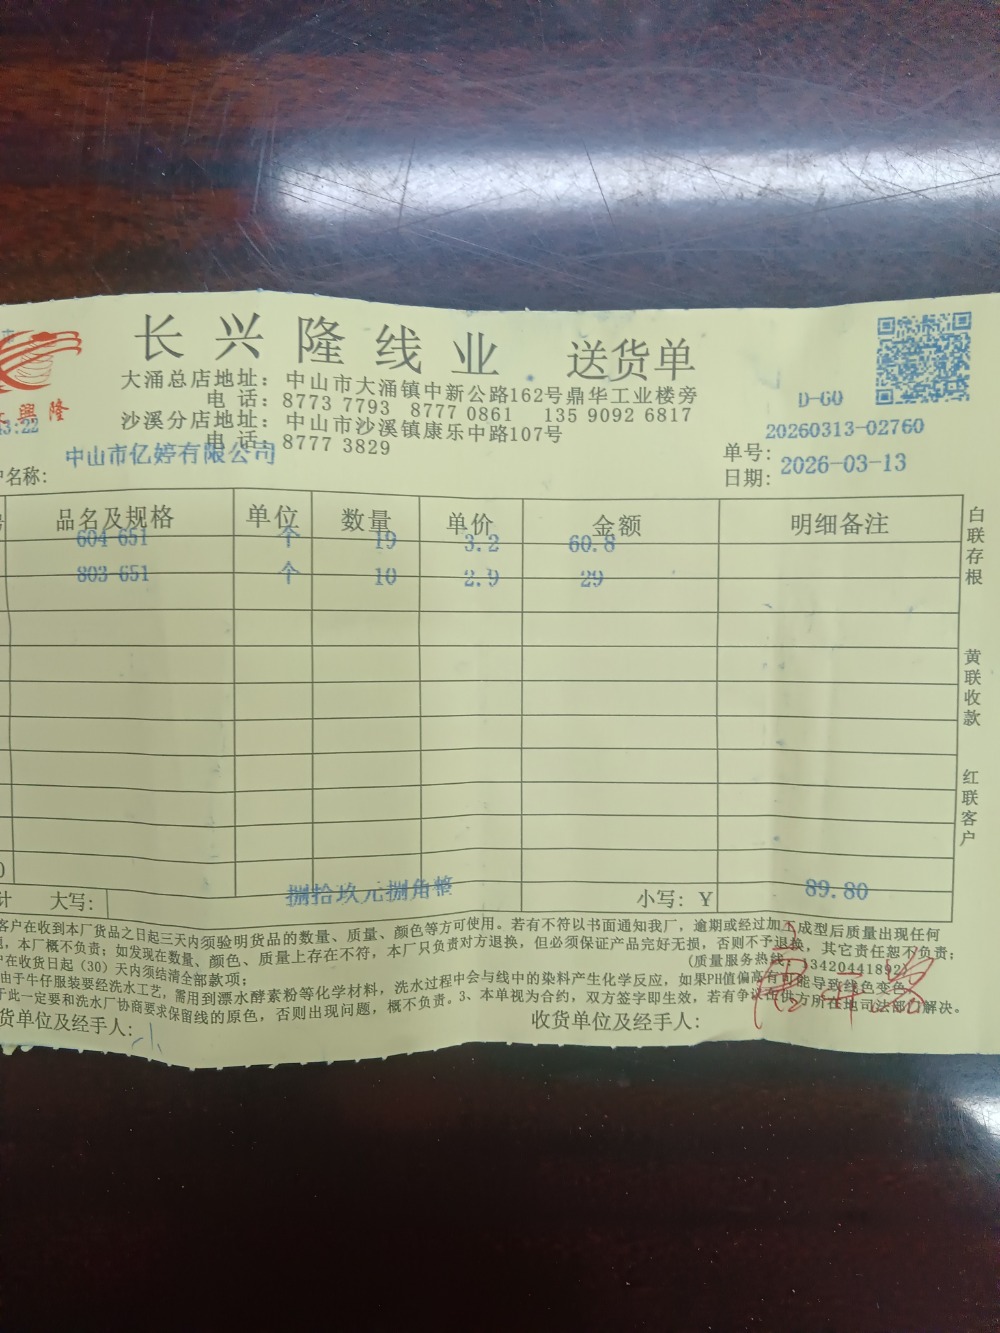 长兴隆线业 送货单
大涌总店地址：中山市大涌镇中新公路162号鼎华工业楼旁
电 话：8773 7793 8777 0861 135 9092 6817
沙溪分店地址：中山市沙溪镇康乐中路107号
电 话：8777 3829
興隆
3:22
D-60
单号：20260313-02760
日期：2026-03-13
户名称：中山市亿婷有限公司
品名及规格 单位 数量 单价 金额 明细备注
604 651 个 19 3.2 60.8
803 651 个 10 2.9 29
白联存根
黄联收款
红联客户
计 大写：捌拾玖元捌角整 小写：Y 89.80
客户在收到本厂货品之日起三天内须验明货品的数量、质量、颜色等方可使用。若有不符以书面通知我厂，逾期或经过加工成型后质量出现任何
，本厂概不负责；如发现在数量、颜色、质量上存在不符，本厂只负责对方退换，但必须保证产品完好无损，否则不予退换，其它责任恕不负责；
户在收货日起（30）天内须结清全部款项；
（质量服务热线：13420441892）
由于牛仔服装要经洗水工艺，需用到漂水酵素粉等化学材料，洗水过程中会与线中的染料产生化学反应，如果PH值偏高有可能导致线色变色，
于此一定要和洗水厂协商要求保留线的原色，否则出现问题，概不负责。3、本单视为合约，双方签字即生效，若有争议由供方所在地司法部门解决。
货单位及经手人：
收货单位及经手人：